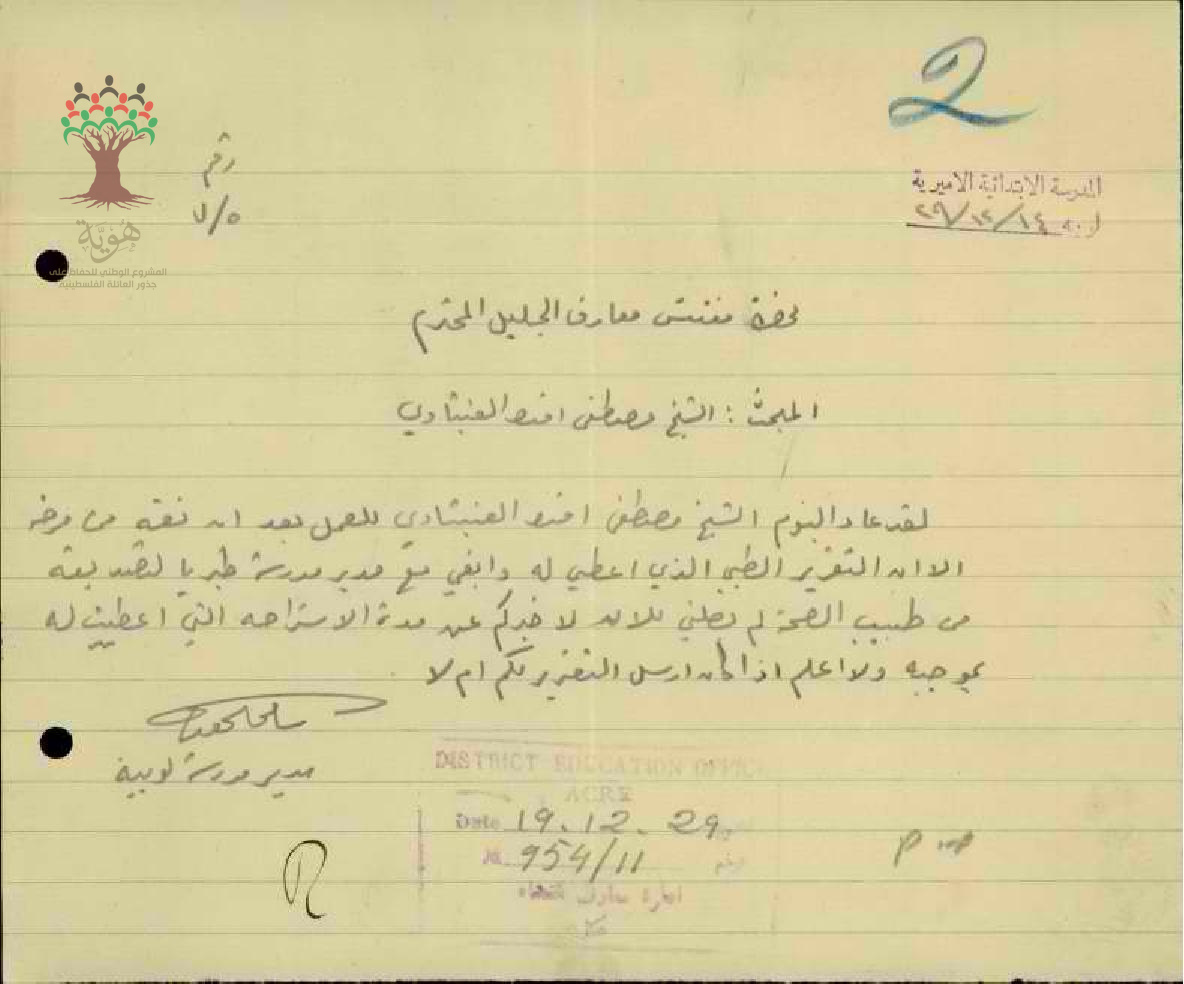 2
المدرسة الابتدائية الاميرية
٢٩/١٢/١٤
رقم
٧/٥
هُوِيَّة
المشروع الوطني للحفاظ على
جذور العائلة الفلسطينية
لحضرة مفتش معارف الجليل المحترم
المبحث : الشيخ مصطفى افندي العنبتاوي
لقد عاد اليوم الشيخ مصطفى افندي العنبتاوي للعمل بعد ان نقه من مرضه
الا ان التقرير الطبي الذي اعطي له وابقي مع مدير مدرسة طبريا لتصديقه
من طبيب الصحة لم يصلني للان لاخبركم عن مدة الاستراحه التي اعطيت له
بموجبه ولا اعلم اذا كان ارسل التقرير لكم ام لا
مدير مدرسة لوبية
DISTRICT EDUCATION OFFICE
ACRE
Date 19.12.29
No. 954/11 رقم
ادارة معارف قضاء
عكا